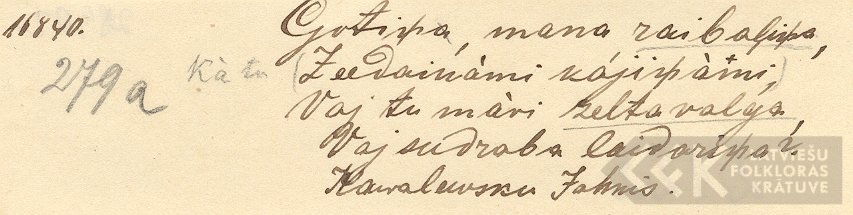 16840.
Gotiņa, mana raibaļiņa,
279a Kà tu (Zeedainàmi kájiņàmi,)
Vaj tu màri zelta valgà,
Vaj sudraba laidariņà?
Kawalewsku Jahnis.
LATVIEŠU
FOLKLORAS
KRĀTUVE